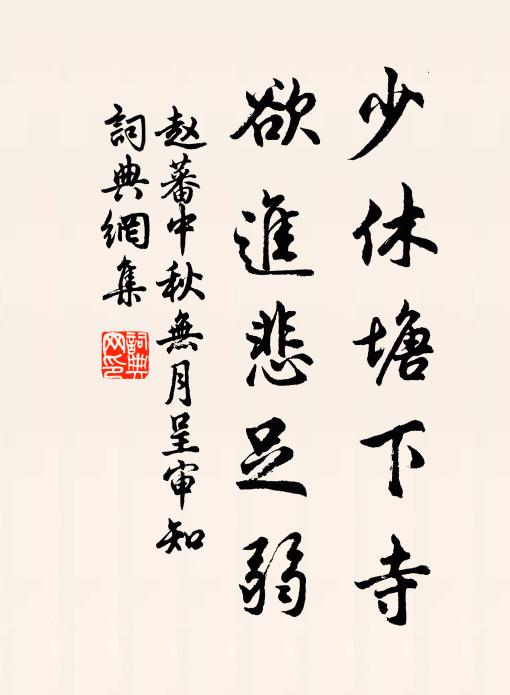 少休塘下寺
欲進悲足弱
赵蕃中秋無月呈审知
詞典網集
詞典网印